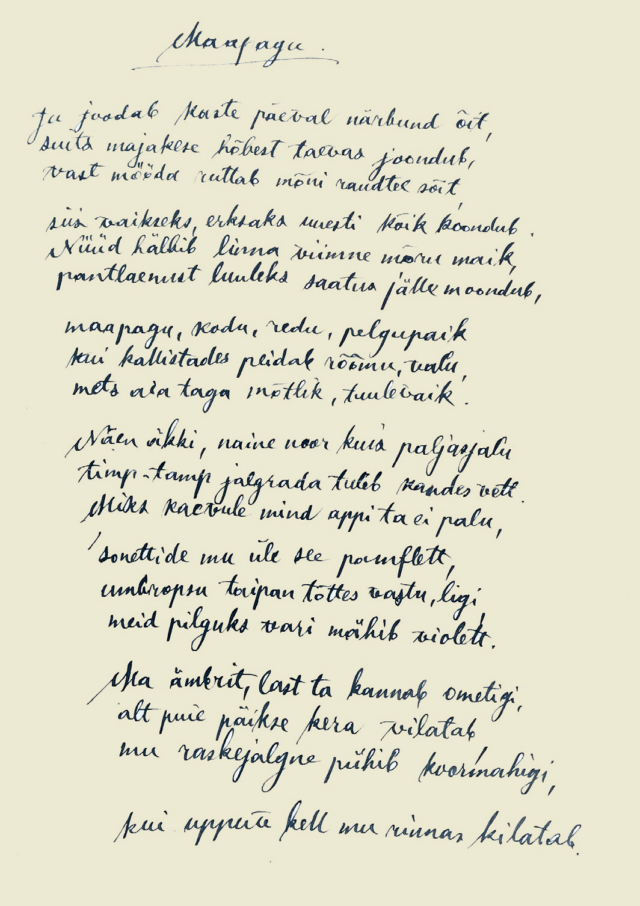 Maapagu.
Ju joodab kaste päeval närbund õit,
suits majakese hõbest taevas joondub,
vast mööda ruttab mõni raudtee sõit,
siis vaikseks, erksaks uuesti kõik koondub.
Nüüd hälbib linna viimne mõru maik,
pantlaenust luuleks saatus jälle moondub,
maapagu, kodu, redu, pelgupaik
kui kallistades peidab rõõmu, valu,
mets aia taga mõtlik, tuulevaik.
Näen äkki, naine noor kuis paljasjalu
timp-tamp jalgrada tuleb kandes vett.
Miks kaevule mind appi ta ei palu,
sonettide mu üle see pamflett,
umbropsu taipan tõttes vastu, ligi,
meid pilguks vari mähib violett.
Ma ämbrit, last ta kannab ometigi,
alt puie päikse kera vilatab
mu raskejalgne pühib koormahigi,
kui uppute kell mu rinnas kilatab.